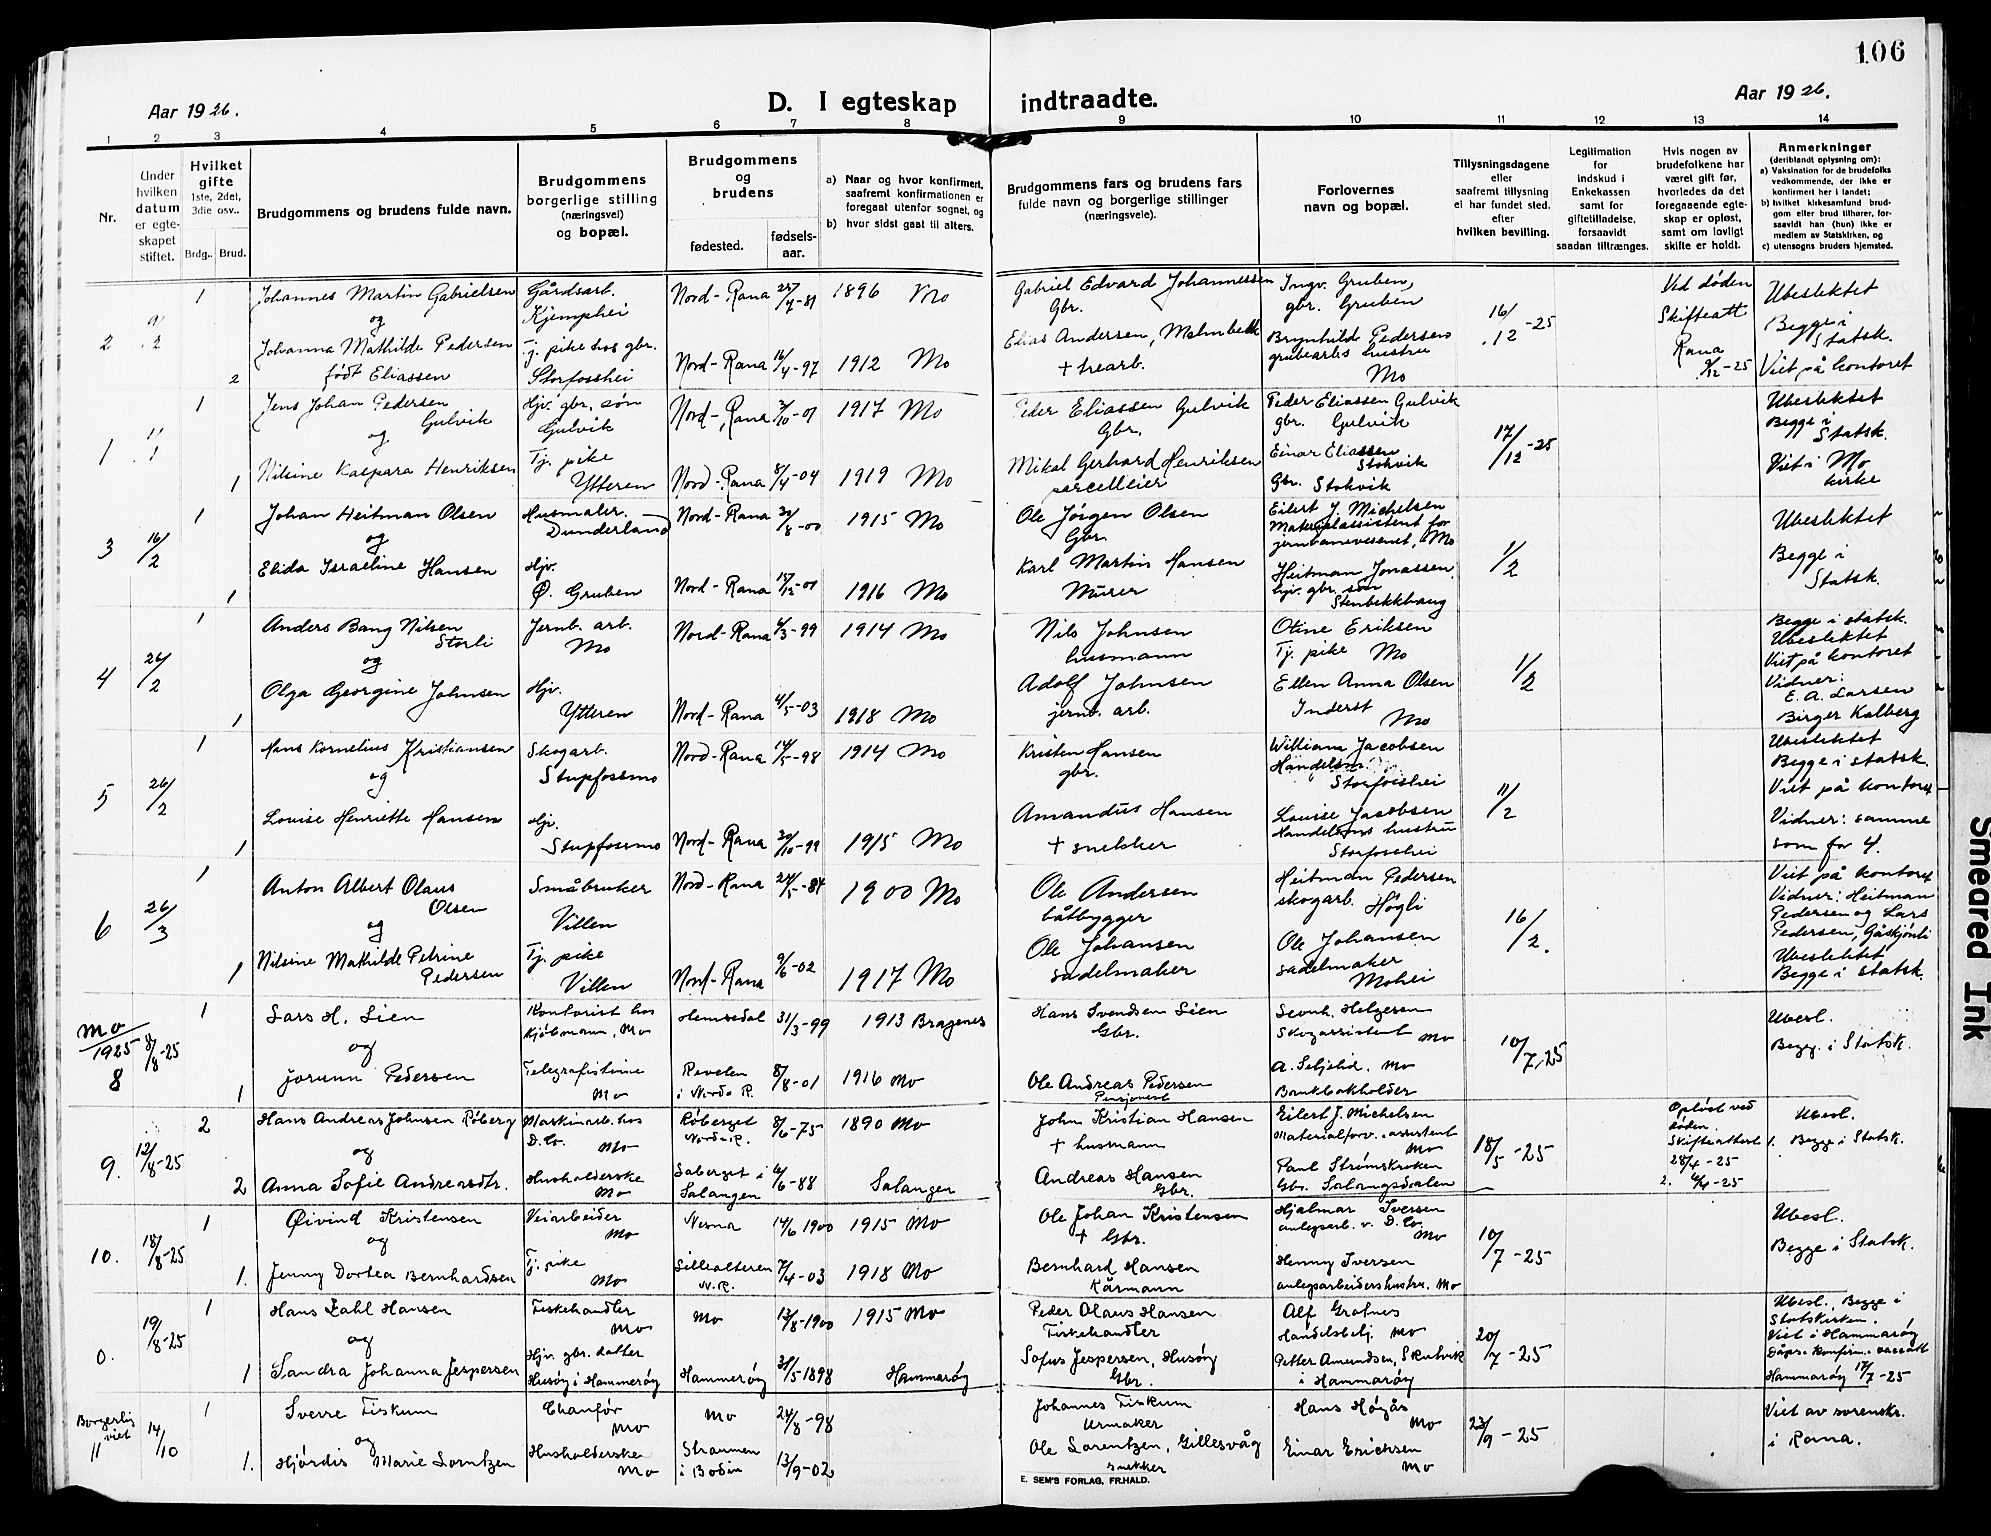 106
Aar 1926.
D. I egteskap indtraadte.
Aar 1926.
1 2 3 4 5 6 7 8 9 10 11 12 13 14
Nr.
Under hvilken datum er egteskapet stiftet.
Hvilket gifte 1ste, 2det, 3die osv..
Brdg.. Brud.
Brudgommens og brudens fulde navn.
Brudgommens borgerlige stilling (næringsvei) og bopæl.
Brudgommens og brudens
fødested.
fødselsaar.
a) Naar og hvor konfirmert, saafremt konfirmationen er foregaat utenfor sognet, og
b) hvor sidst gaat til alters.
Brudgommens fars og brudens fars fulde navn og borgerlige stillinger (næringsveie).
Forlovernes navn og bopæl.
Tillysningsdagene eller saafremt tillysning ei har fundet sted. efter hvilken bevilling.
Legitimation for indskud i Enkekassen samt for giftetilladelse, forsaavidt saadan tiltrænges.
Hvis nogen av brudefolkene har været gift før, hvorledes da det foregaaende egteskap er opløst, samt om lovligt skifte er holdt.
Anmerkninger
(deriblandt oplysning om):
a) Vaksination for de brudefolks vedkommende, der ikke er konfirmert her i landet;
b) hvilket kirkesamfund brudgom eller brud tilhører, forsaavidt han (hun) ikke er medlem av Statskirken, og
c) utensogns bruders hjemsted.
2
1 Johannes Martin Gabrielsen Gårdsarb. Kjemphei Nord-Rana 1896 Mo Gabriel Edvard Johannessen Gbr. Ingv. Gruben, gbr. Gruben 16/12-25 Ved døden Skifteatt Rana Ubeslektet
og
2 Johanna Mathilde Pedersen født Eliassen Tj. pike hos gbr. Storfosshei Nord-Rana 16/4-97 1912 Mo Elias Andersen, + trearb. Brynhild Pedersen grubearbs hustru Mo 9/12-25 Begge i Statsk. Viet på kontoret
1
1 Jens Johan Pedersen Gulvik Hjv. gbr. søn Gulvik Nord-Rana 3/10-01 1917 Mo Peder Eliassen Gulvik Gbr. Peder Eliassen Gulvik gbr. Gulvik 17/12-25 Ubeslektet Begge i Statsk.
og
1 Nilsine Kaspara Henriksen Tj. pike Ytteren Nord-Rana 8/4-04 1919 Mo Mikal Gerhard Henriksen parcelleier Einar Eliassen Stokvik Gbr. Stokvik Viet i Mo kirke
3 16/2
1 Johan Heitman Olsen Husmaler. Dunderland Nord-Rana 30/8-00 1915 Mo Ole Jörgen Olsen Gbr. Eilert J. Michelsen Materialassistent for jernbanevesenet, Mo 1/2 Ubeslektet
og
1 Elida Israeline Hansen Hjv. Ø. Gruben Nord-Rana 1916 Mo Karl Martin Hansen Murer Heitman Jonassen hjv. gbr. søn Stenbekkhaug Begge i Statsk.
4 26/2
1 Anders Bang Nilsen Storli Jernb. arb. Mo Nord-Rana 4/3-99 1914 Mo Nils Johnsen husmann Otine Eriksen Tj. pike Mo 1/2 Begge i statsk. Ubeslektet Viet på kontoret
og
1 Olga Georgine Johnsen Hjv. Ytteren Nord-Rana 4/5-03 1918 Mo Adolf Johnsen jernb. arb. Ellen Anna Olsen Inderst Mo Vidner: E. A. Larsen Birger Kalberg
5 26/2
1 Hans Kornelius Kristiansen Skogarb. Stupfossmo Nord-Rana 14/5-98 1914 Mo Kristen Hansen gbr. William Jacobsen Handelsm. Storfosshei 11/2 Ubeslektet Begge i statsk. Viet på kontoret
og
1 Louise Henriette Hansen Hjv. Stupfossmo Nord-Rana 30/10-99 1915 Mo Amandus Hansen + snekker Louise Jacobsen Handelsms hustru Storfosshei Vidner: samme som for 4.
6 26/3
1 Anton Albert Olaus Olsen Småbruker Villen Nord-Rana 24/5-84 1900 Mo Ole Andersen båtbygger Heitman Pedersen skogarb. Högli 16/2. Viet på kontoret Vidner: Heitman Pedersen og Lars Pedersen, Gåskjønli
og
1 Nilsine Mathilde Petrine Pedersen Tj. pike Villen Nord-Rana 9/6-02 1917 Mo Ole Johansen sadelmaker Ole Johansen sadelmaker Mohei Ubeslektet Begge i Statsk.
Mo/1925 8 8/8-25
1 Lars H. Lien Kontorist hos Kjøbmann, Mo Hemsedal 31/3-99 1913 Bragenes Hans Svendsen Lien Gbr. Leonh. Helgesen Skogassistent Mo 10/7, 25 Ubesl.
og
1 Jorunn Pedersen Telegrafistinne Mo Revelen i Nordr R. 8/8-01 1916 Mo Ole Andreas Pedersen Pensjonist A. Seljelid. Mo Bankbokholder Begg. i Statsk.
9. 12/8-25
2 Hans Andreas Johnsen Røberg Maskinarb. hos D. Co. Mo Røberget Nord-R. 8/6-75 1890 Mo John Kristian Hansen + husmann Eilert J. Michelsen Materialforv. assistent Mo 18/5-25 Opløst ved døden. Skifteattest 1. 28/4-25 Ubesl. Begge i Statsk.
og
2 Anna Sofie Andreasdtr. Husholderske Mo Saberget i Salangen 6/6-88 Salangen Andreas Hansen Gbr. Paul Strømskroken Gbr. Salangsdalen 2. 6/4-25
10. 18/8-25
1 Øivind Kristensen Veiarbeider Mo Nesna 14/6 1900 1915 Mo Ole Johan Kristensen + Gbr. Hjalmar Iversen anlegsarb. v. D. Co. Mo 10/7-25 Ubesl.
og
1. Jenny Dortea Bernhardsen Tj. pike Mo N. R. 7/4-03 1918 Mo Bernhard Hansen Kårmann Henny Iversen anlegsarbeiders hustru. Mo Begge i Statsk.
0. 19/8-25
1 Hans Zahl Hansen Fiskehandler Mo Mo 13/8-1900 1915 Mo Peder Olaus Hansen. Fiskehandler Alf Grafnes Handelsbetj. Mo 20/7-25 Ubesl. Begge i Statskirken. Viet i Hammarøy
og
1 Sandra Johanna Jespersen Hjv. gbr. datter Husøy i Hammerøy Hammerøy 31/5-1898 Hammarøy Sofus Jespersen, Husøy Gbr. Petter Amundsen, Skutvik i Hammarøy Dåps- Konfirm. - vacsatt Hammarøy 17/7-25
Borgerlig viet 11 14/10
1 Sverre Fiskum Chauför Mo Mo 24/8-98 Johannes Fiskum Urmaker Hans Høgås Mo 23/9-25 Viet av sorenskr.
og
1. Hjördis Marie Lorntzen Husholderske Mo Straumen i Bodin 13/9-02 Ole Lorentzen, Gillesvåg snekker Einar Erichsen Mo i Rana.
E. SEM'S FORLAG, FR.HALD.
Smeared Ink